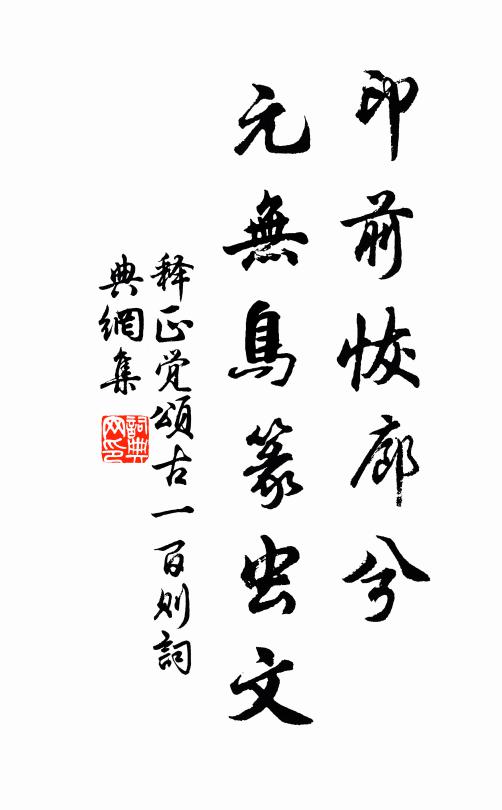 印前恢廓兮
元無鳥篆虫文
释正觉頌古一百则詞
典網集
詞典網印